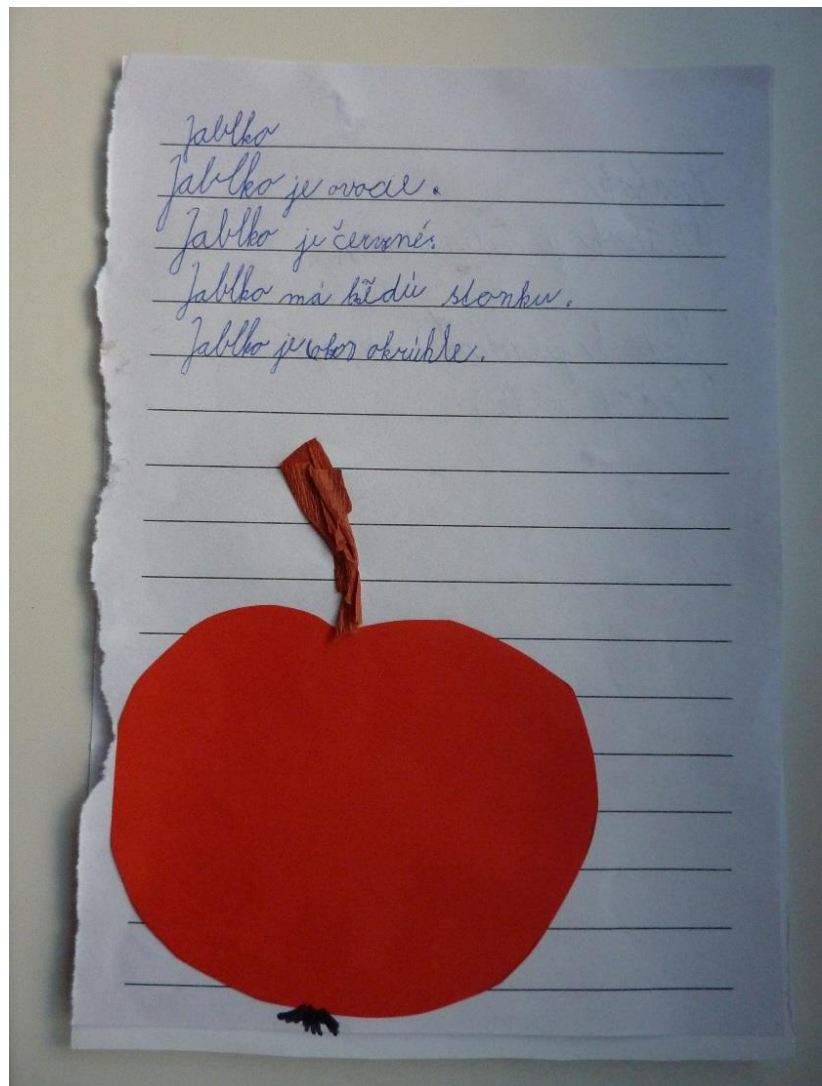 Jablko
Jablko je ovocie.
Jablko je červené.
Jablko má stonku.
Jablko je okrúhle.